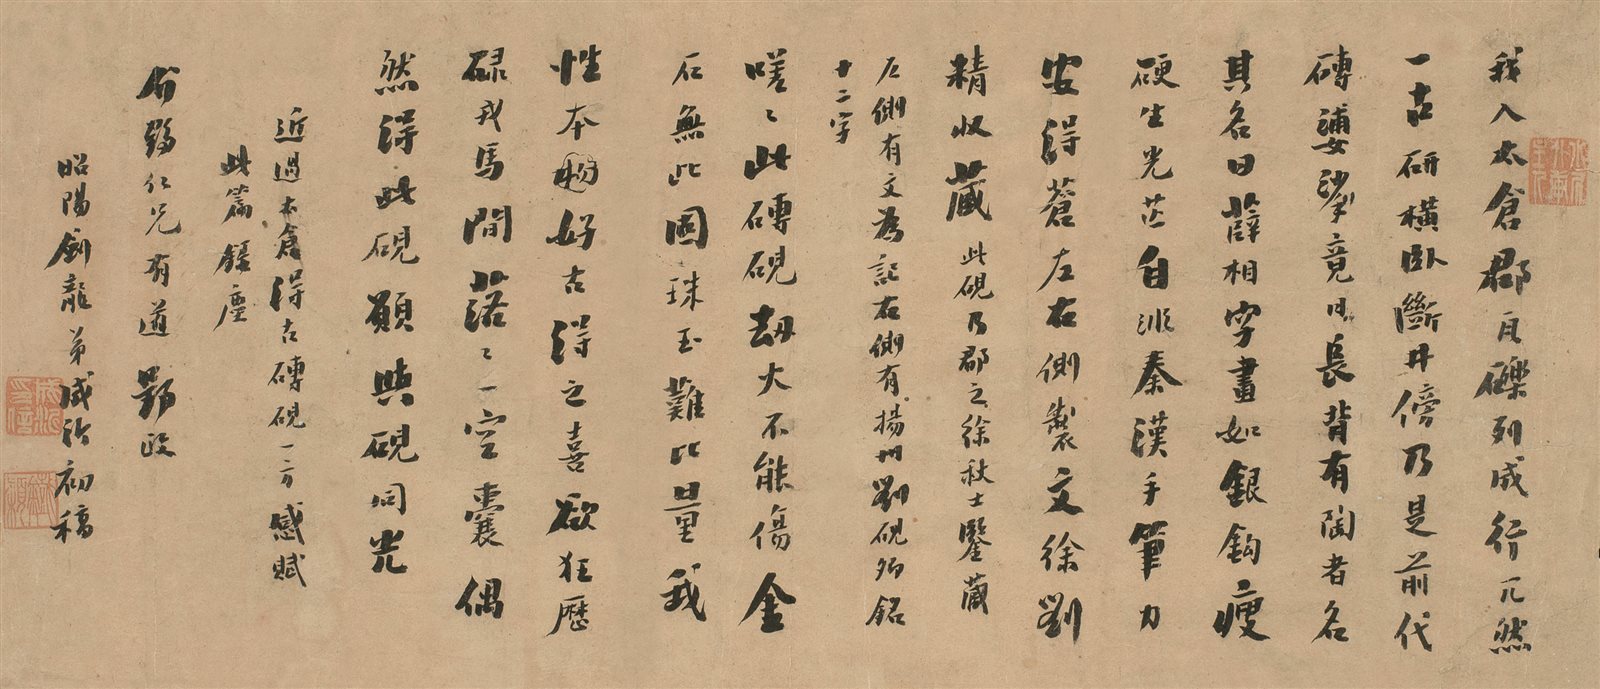 我入太倉郡瓦礫列成行兀然
一古研橫臥斷井傍乃是前代
磚婆娑竟日長背有陶者名
其名曰薛相字畫如銀鉤瘦
硬生光芒自非秦漢手筆力
安得蒼左右側製文徐劉
精收藏此硯乃郡之徐秋士鑒藏
左側有文為記右側有揚州劉硯卿銘
十二字
嗟〻此磚硯劫火不能傷金
石無此固珠玉難比量我
性本好古得之喜欲狂歷
碌戎馬間落〻一空囊偶
然得此硯願與硯同光
近過太倉得古磚硯一方感賦
此篇錄塵
仁兄有道政
昭陽劍龍弟成沂初稿